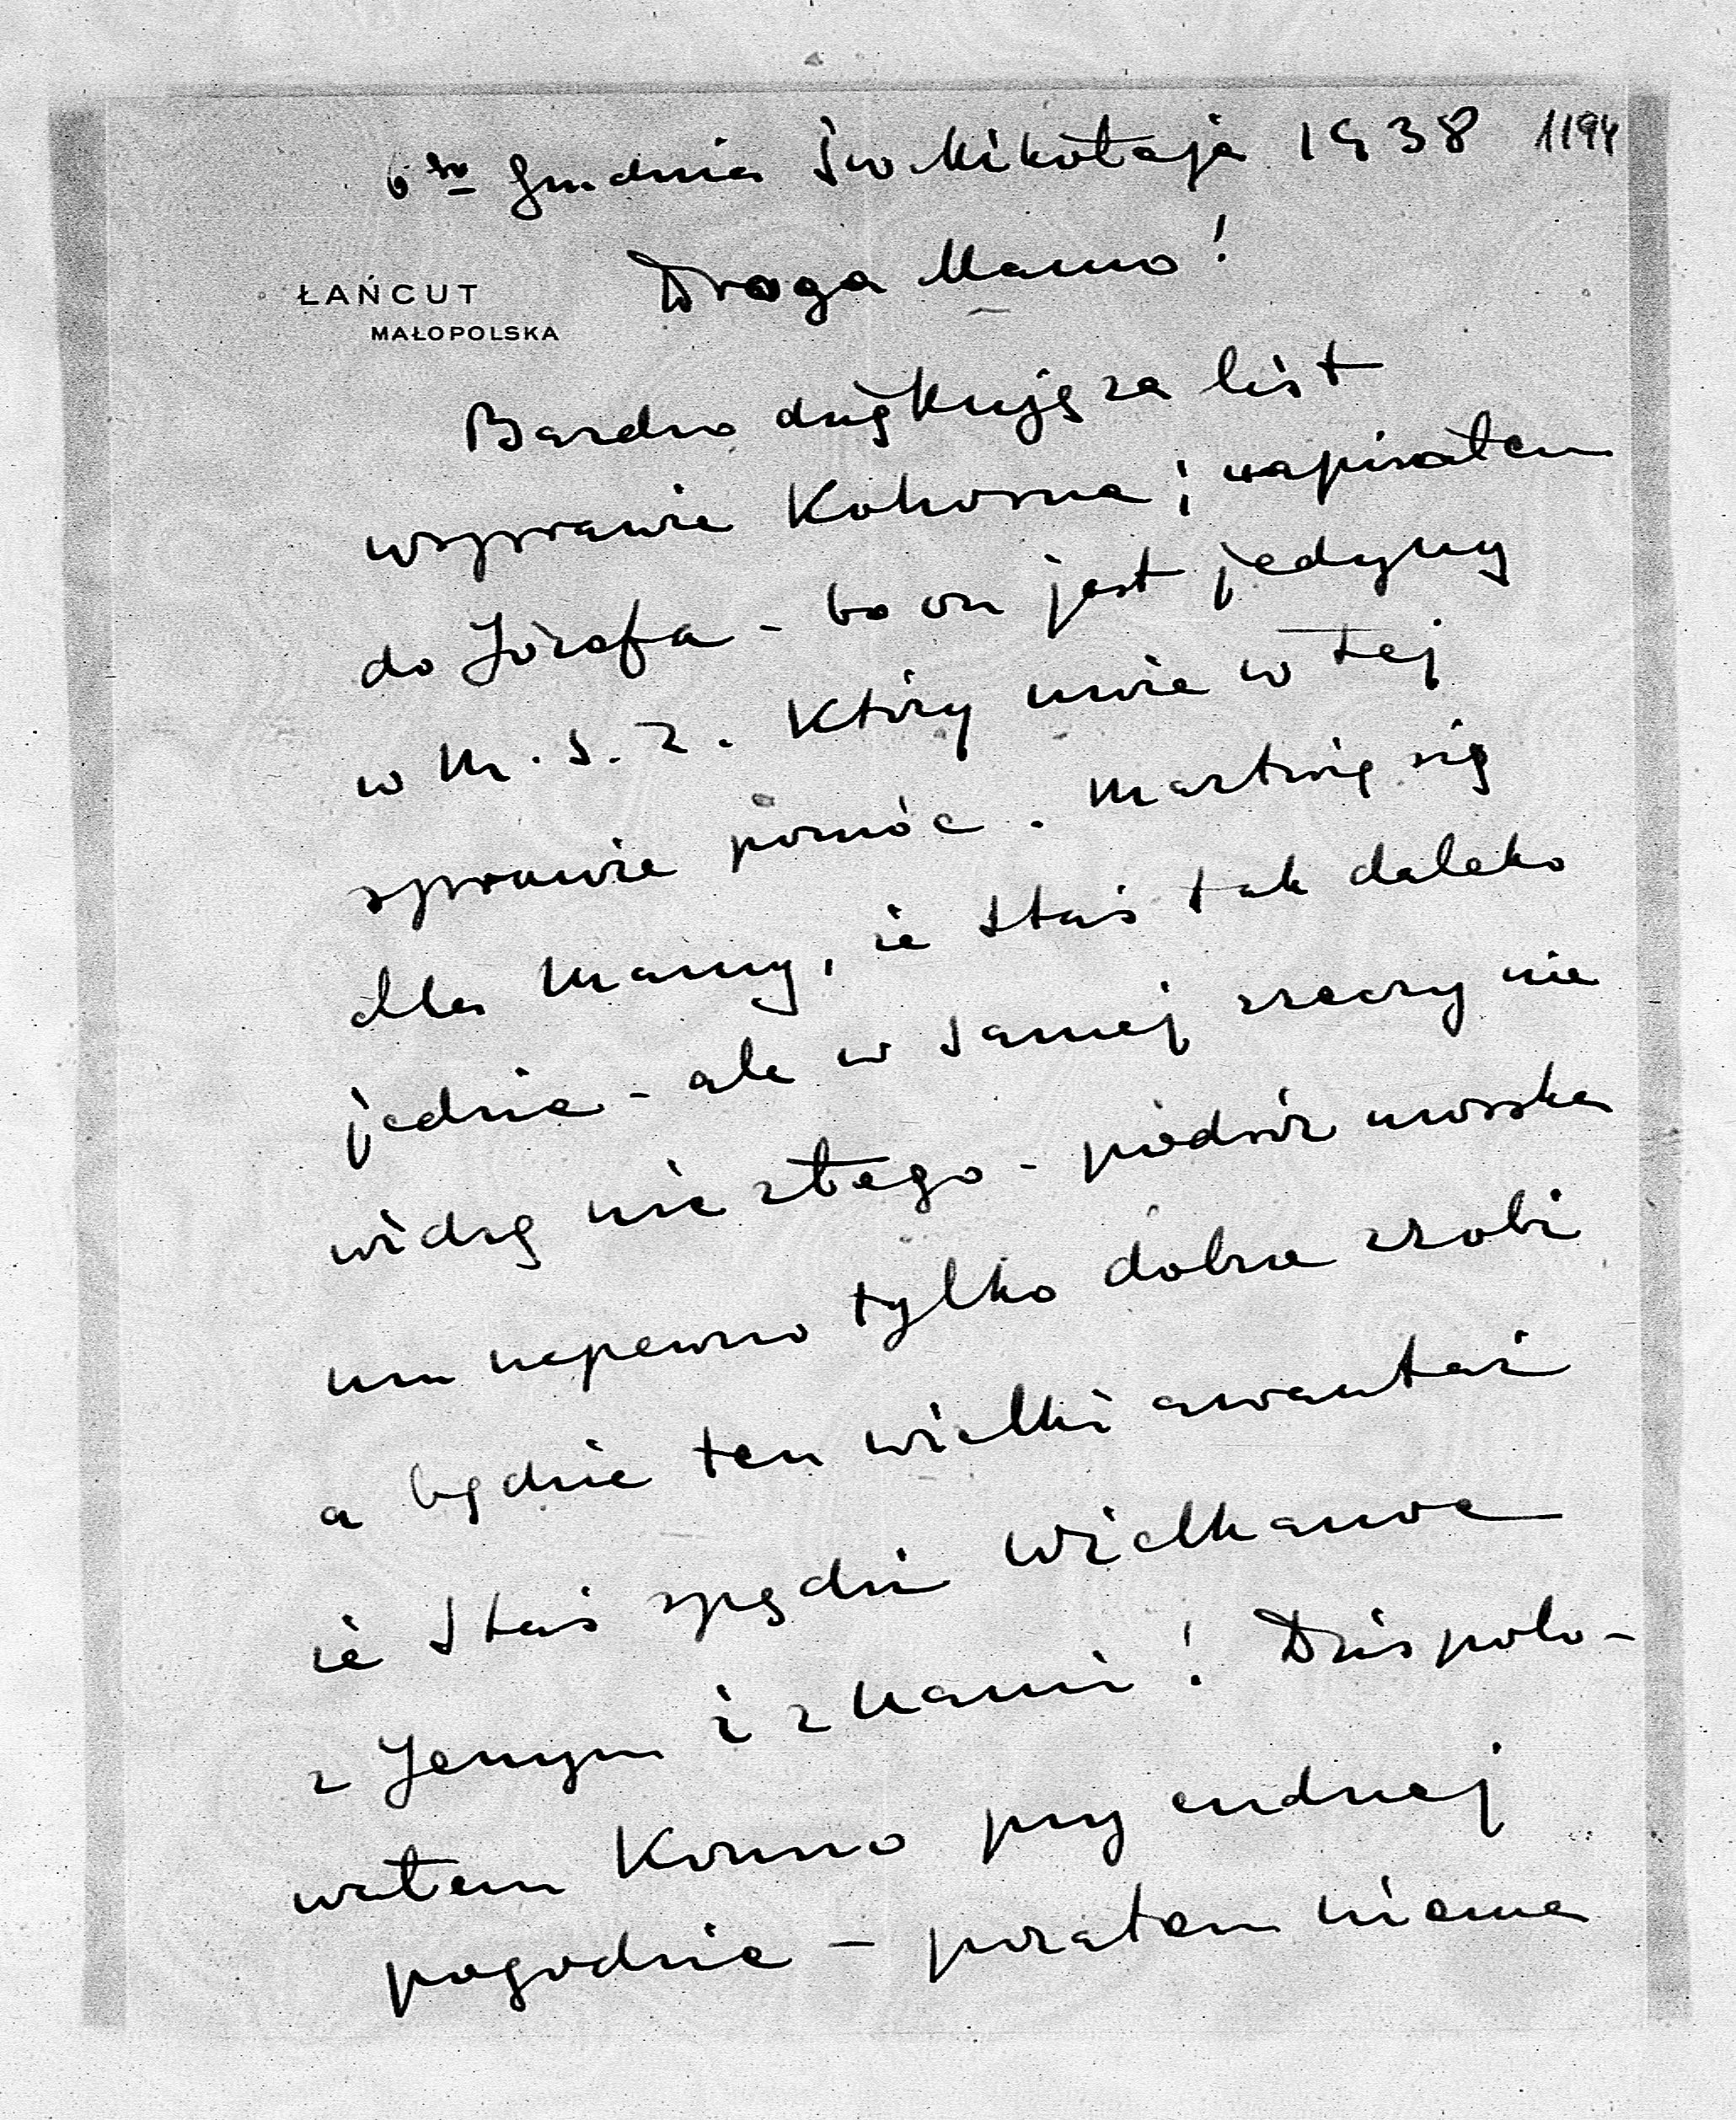 6go Grudnia Św Mikołaja 1938 1194
Droga Mamo!
ŁAŃCUT
MAŁOPOLSKA
Bardzo dziękuję za list
w sprawie Kohorna; napisałem
do Józefa - bo on jest jedyny
w M.S.Z. który może w tej
sprawie pomóc. Martwię się
dla Mamy, że Staś tak daleko
jedzie - ale w samej rzeczy nie
widzę nic złego - podróż morska
mu napewno tylko dobrze zrobi
a będzie ten wielki awantaż
że Staś spędzi Wielkanoc
z Jerzym i z Nami! Dziś polo-
wałem konno przy cudnej
pogodzie — pozatem niema